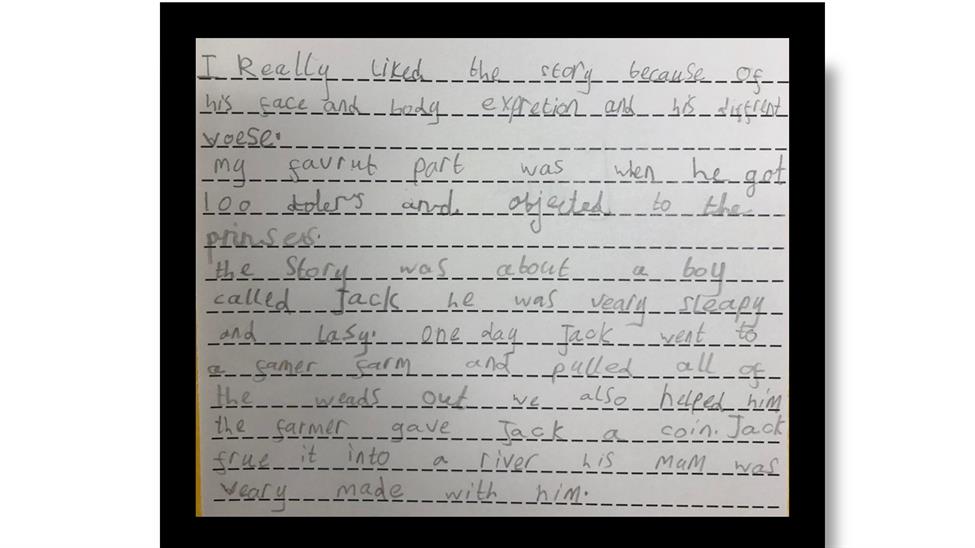 I Really liked the story because of
his face and body expretion and his diffrent
voese.
my favrut part was when he got
100 dolers and objected to the
prinses.
the Story was about a boy
called Jack he was veary sleapy
and lasy. one day Jack went to
a famer farm and pulled all of
the weads out we also helped him
the farmer gave Jack a coin. Jack
frue it into a river his mum was
veary made with him.